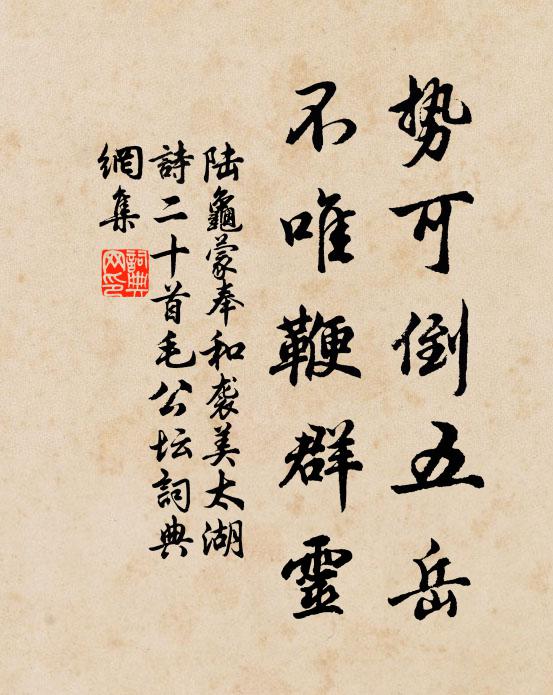 势可倒五岳
不唯鞭群靈
陆龜蒙奉和袭美太湖
詩二十首毛公坛詞典
網集
詞典
网印